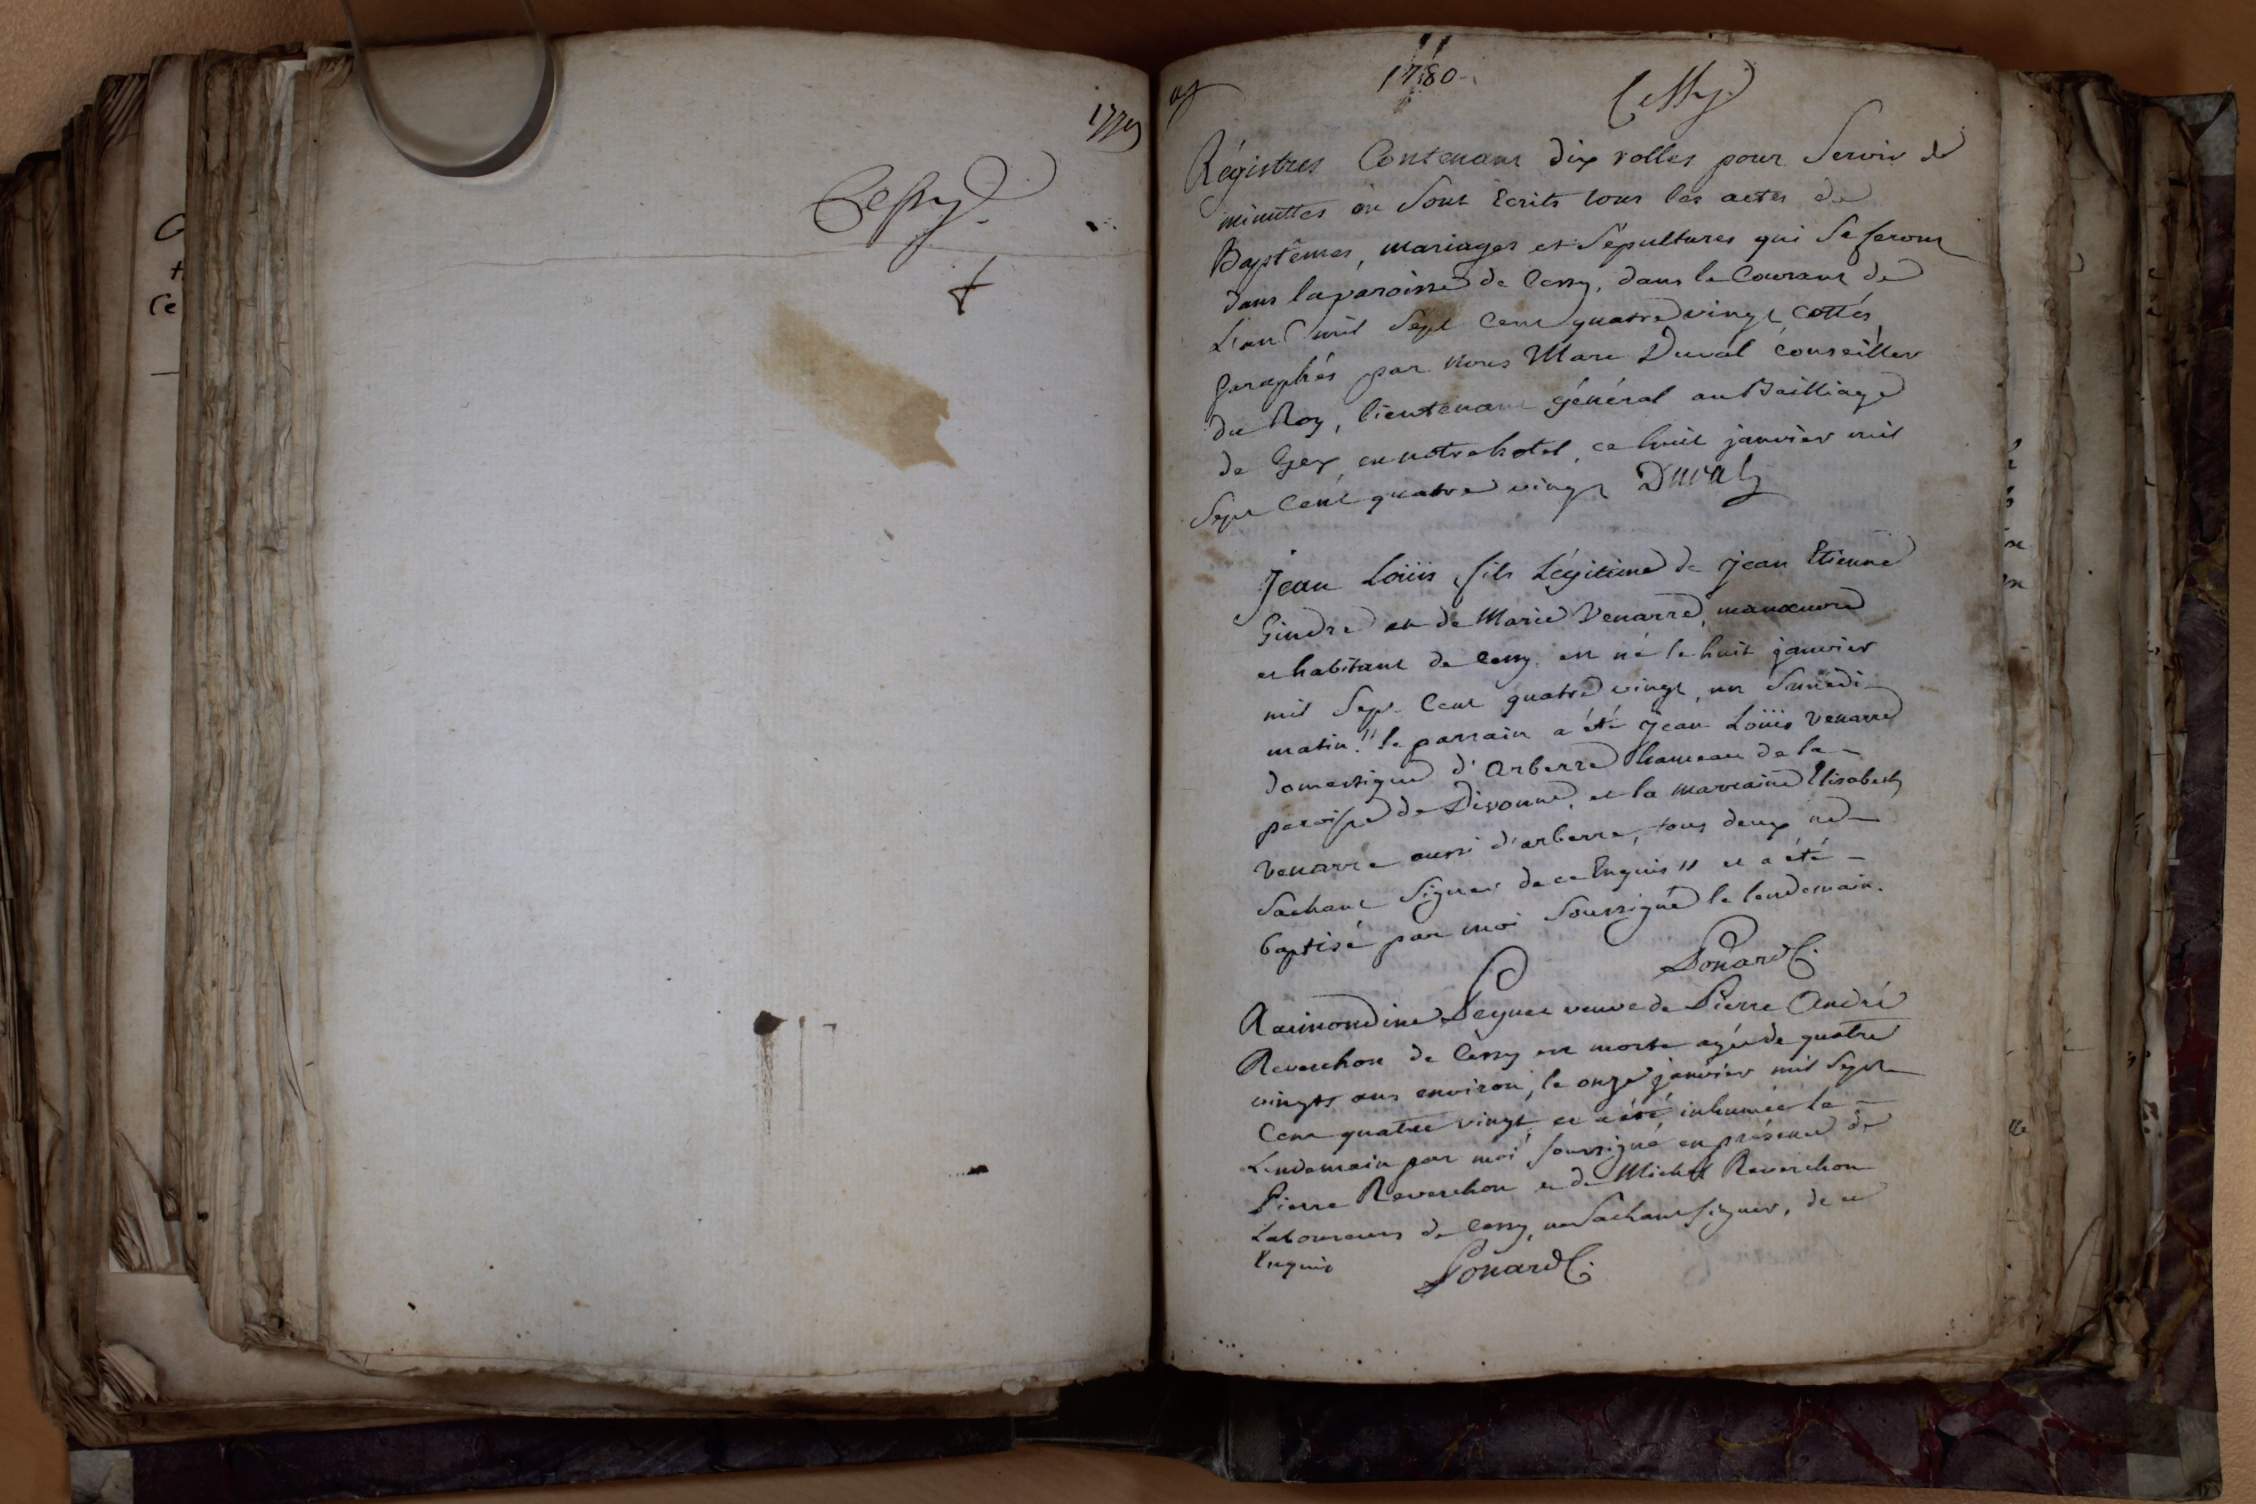 1779
Cessy
1780
Cessy
Régistres Contenant dix rolles pour Servir de
minuttes où Sont Ecrits tous les actes de
Baptêmes, mariages et Sépultures qui Se feront
dans la paroisse de Cessy, dans le Courant de
L'an mil Sept Cent quatre vingt, cottés
paraphés par nous Marc Duval conseiller
du Roy, lieutenant général au Bailliage
de Gex, en notre hotel, ce huit janvier mil
Sept Cent quatre vingt Duval
Jean Loüis, fils Légitime de jean Etienne
Gindre et de Marie Venarre, manœuvre
et habitant de Cessy, est né le huit janvier
mil Sept Cent quatre vingt, un Samedi
matin. " le parrain a été Jean Loüis Venarre
domestique d'Arberre hameau de la
paroisse de Divonne, et la marraine Elisabeth
Venarre aussi d'arberre, tous deux ne
Sachant Signer de ce Enquis " et a été
baptisé par moi Soussigné le lendemain.
Ponard C.
Raimondine Peguet veuve de Pierre André
Reverchon de Cessy est morte agée de quatre
vingts ans environ, le onze janvier mil Sept
Cent quatre vingt, et a été inhumée le
Lendemain par moi soussigné en présence de
Pierre Reverchon et de Michel Reverchon
Laboureurs de Cessy, ne Sachant Signer, de ce
Enquis Ponard C.